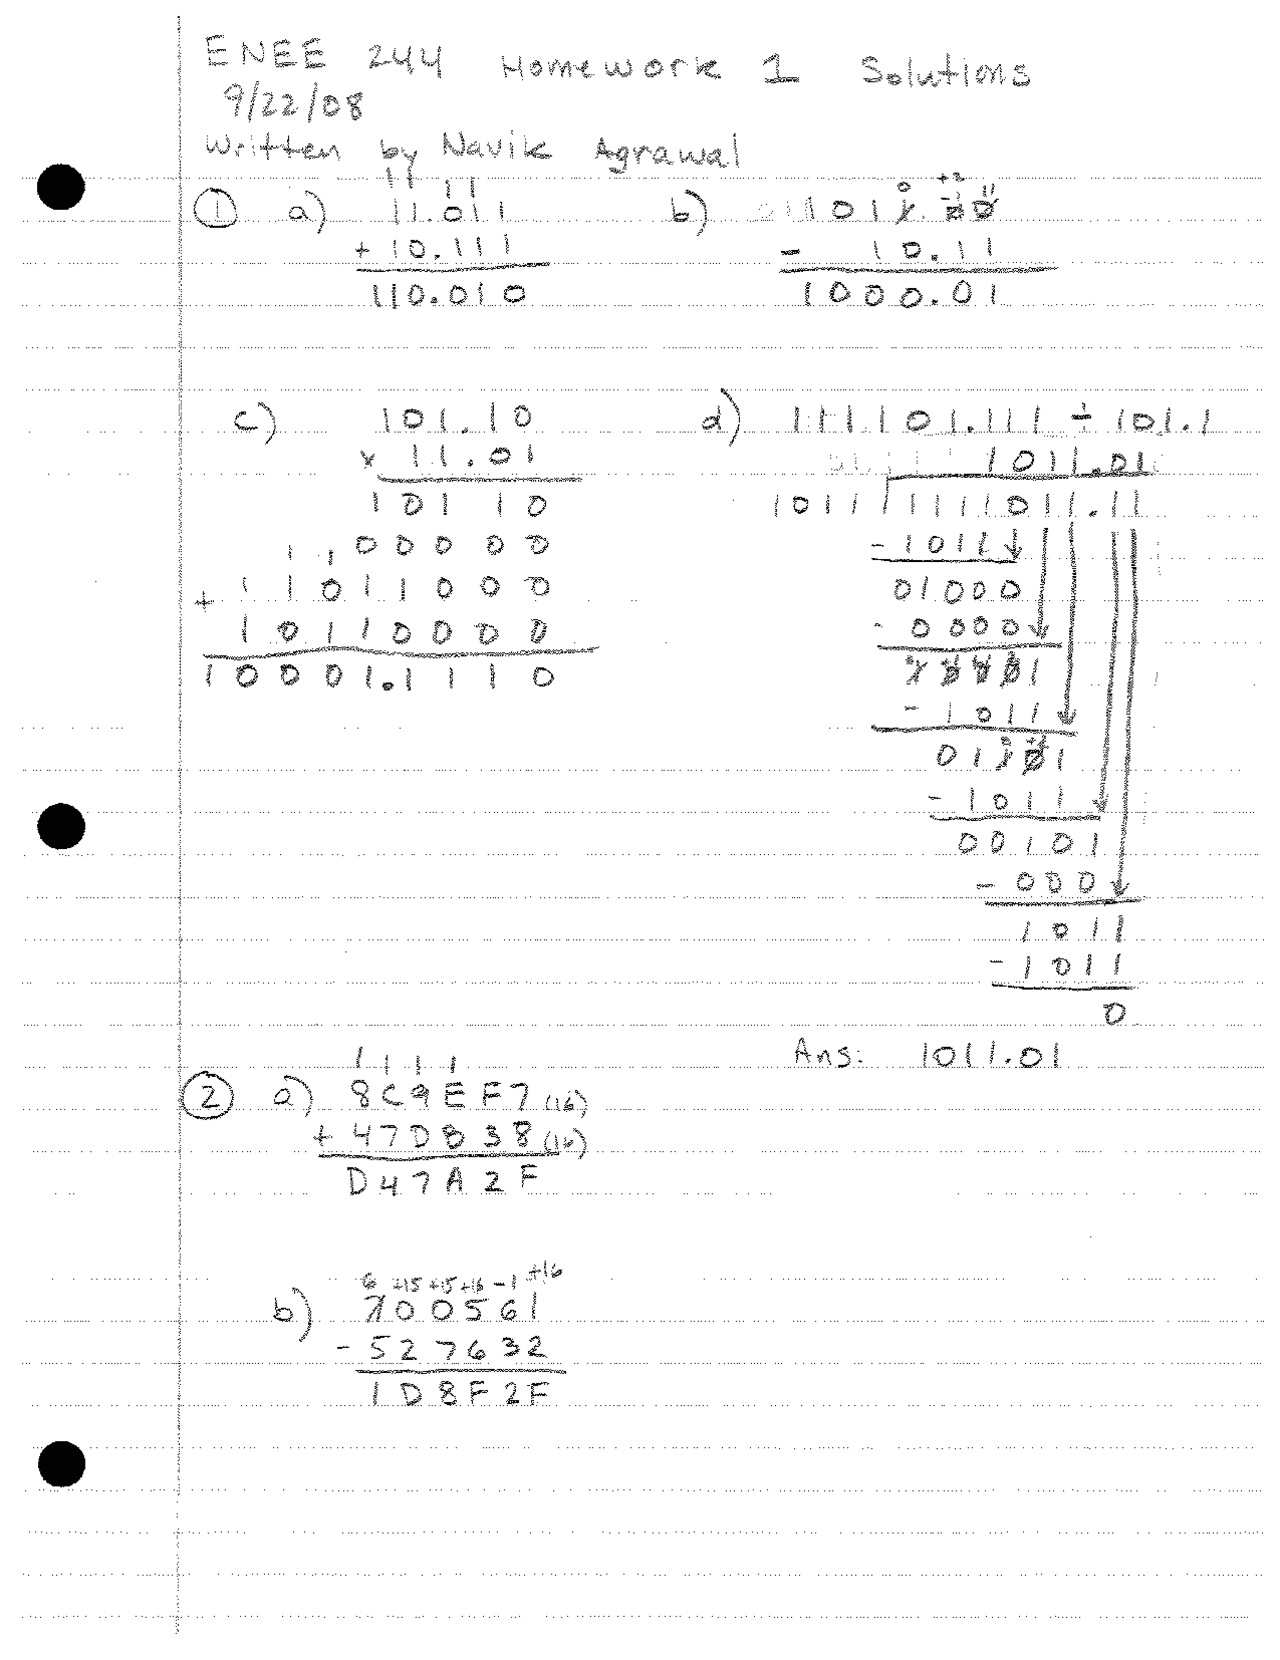 ENEE 244 Homework 1 Solutions
9/22/08
Written by Navik Agrawal
1 a)
11 11
11.011
+ 10.111
110.010
b)
1011.00
- 10.11
1000.01
c)
101.10
x 11.01
101 10
00000
1011000
+ 10110000
10001.1110
d) 111101.111 ÷ 101.1
1011.01
1011 1111011.11
- 1011
01000
- 0000
10001
- 1011
01101
- 1011
00101
- 000
1011
- 1011
0
Ans: 1011.01
2 a)
1 1 1 1
8C9EF7 (16)
+ 47DB38 (16)
D47A2F
b)
6 +15 +15 +16 -1 +16
700561
- 527632
1D8F2F